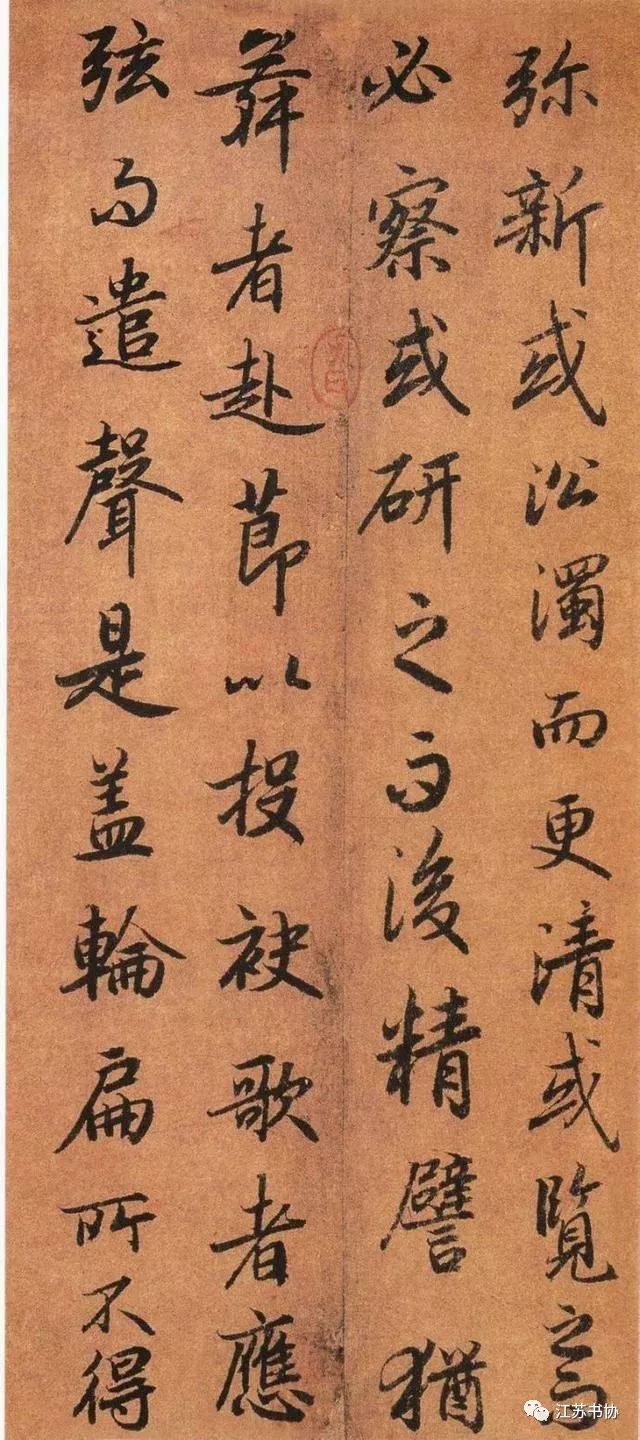 弥新或沿濁而更清或覽之而
必察或研之而後精譬猶
舞者赴節以投袂歌者應
弦而遣聲是盖輪扁所不得
江苏书协